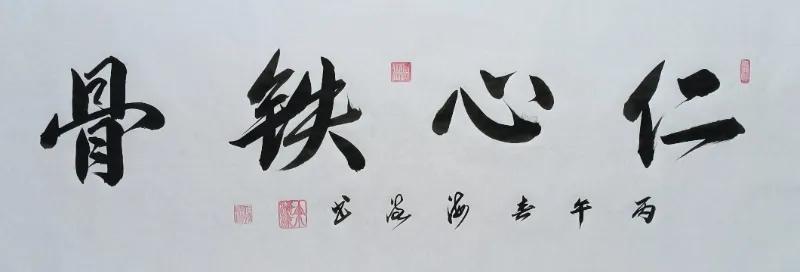 仁心铁骨
丙午春海逸书